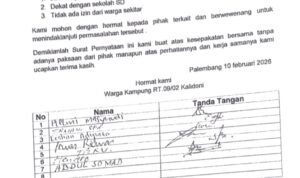 2. Dekat dengan sekolah SD
3. Tidak ada izin dari warga sekitar
Kami mohon dengan hormat kepada pihak terkait dan berwewenang untuk
menindaklanjuti permasalahan tersebut .
Demikianlah Surat Pernyataan ini kami buat atas kesepakatan bersama tanpa
adanya paksaan dari pihak manapun atas perhatiannya dan kerja samanya kami
ucapkan terima kasih.
Palembang 10 februari 2026
Hormat kami
Warga Kampung RT.09/02 Kalidoni
No Nama Tanda Tangan
1
2
3
4
5
6
7 ABDUL SOMAD
8